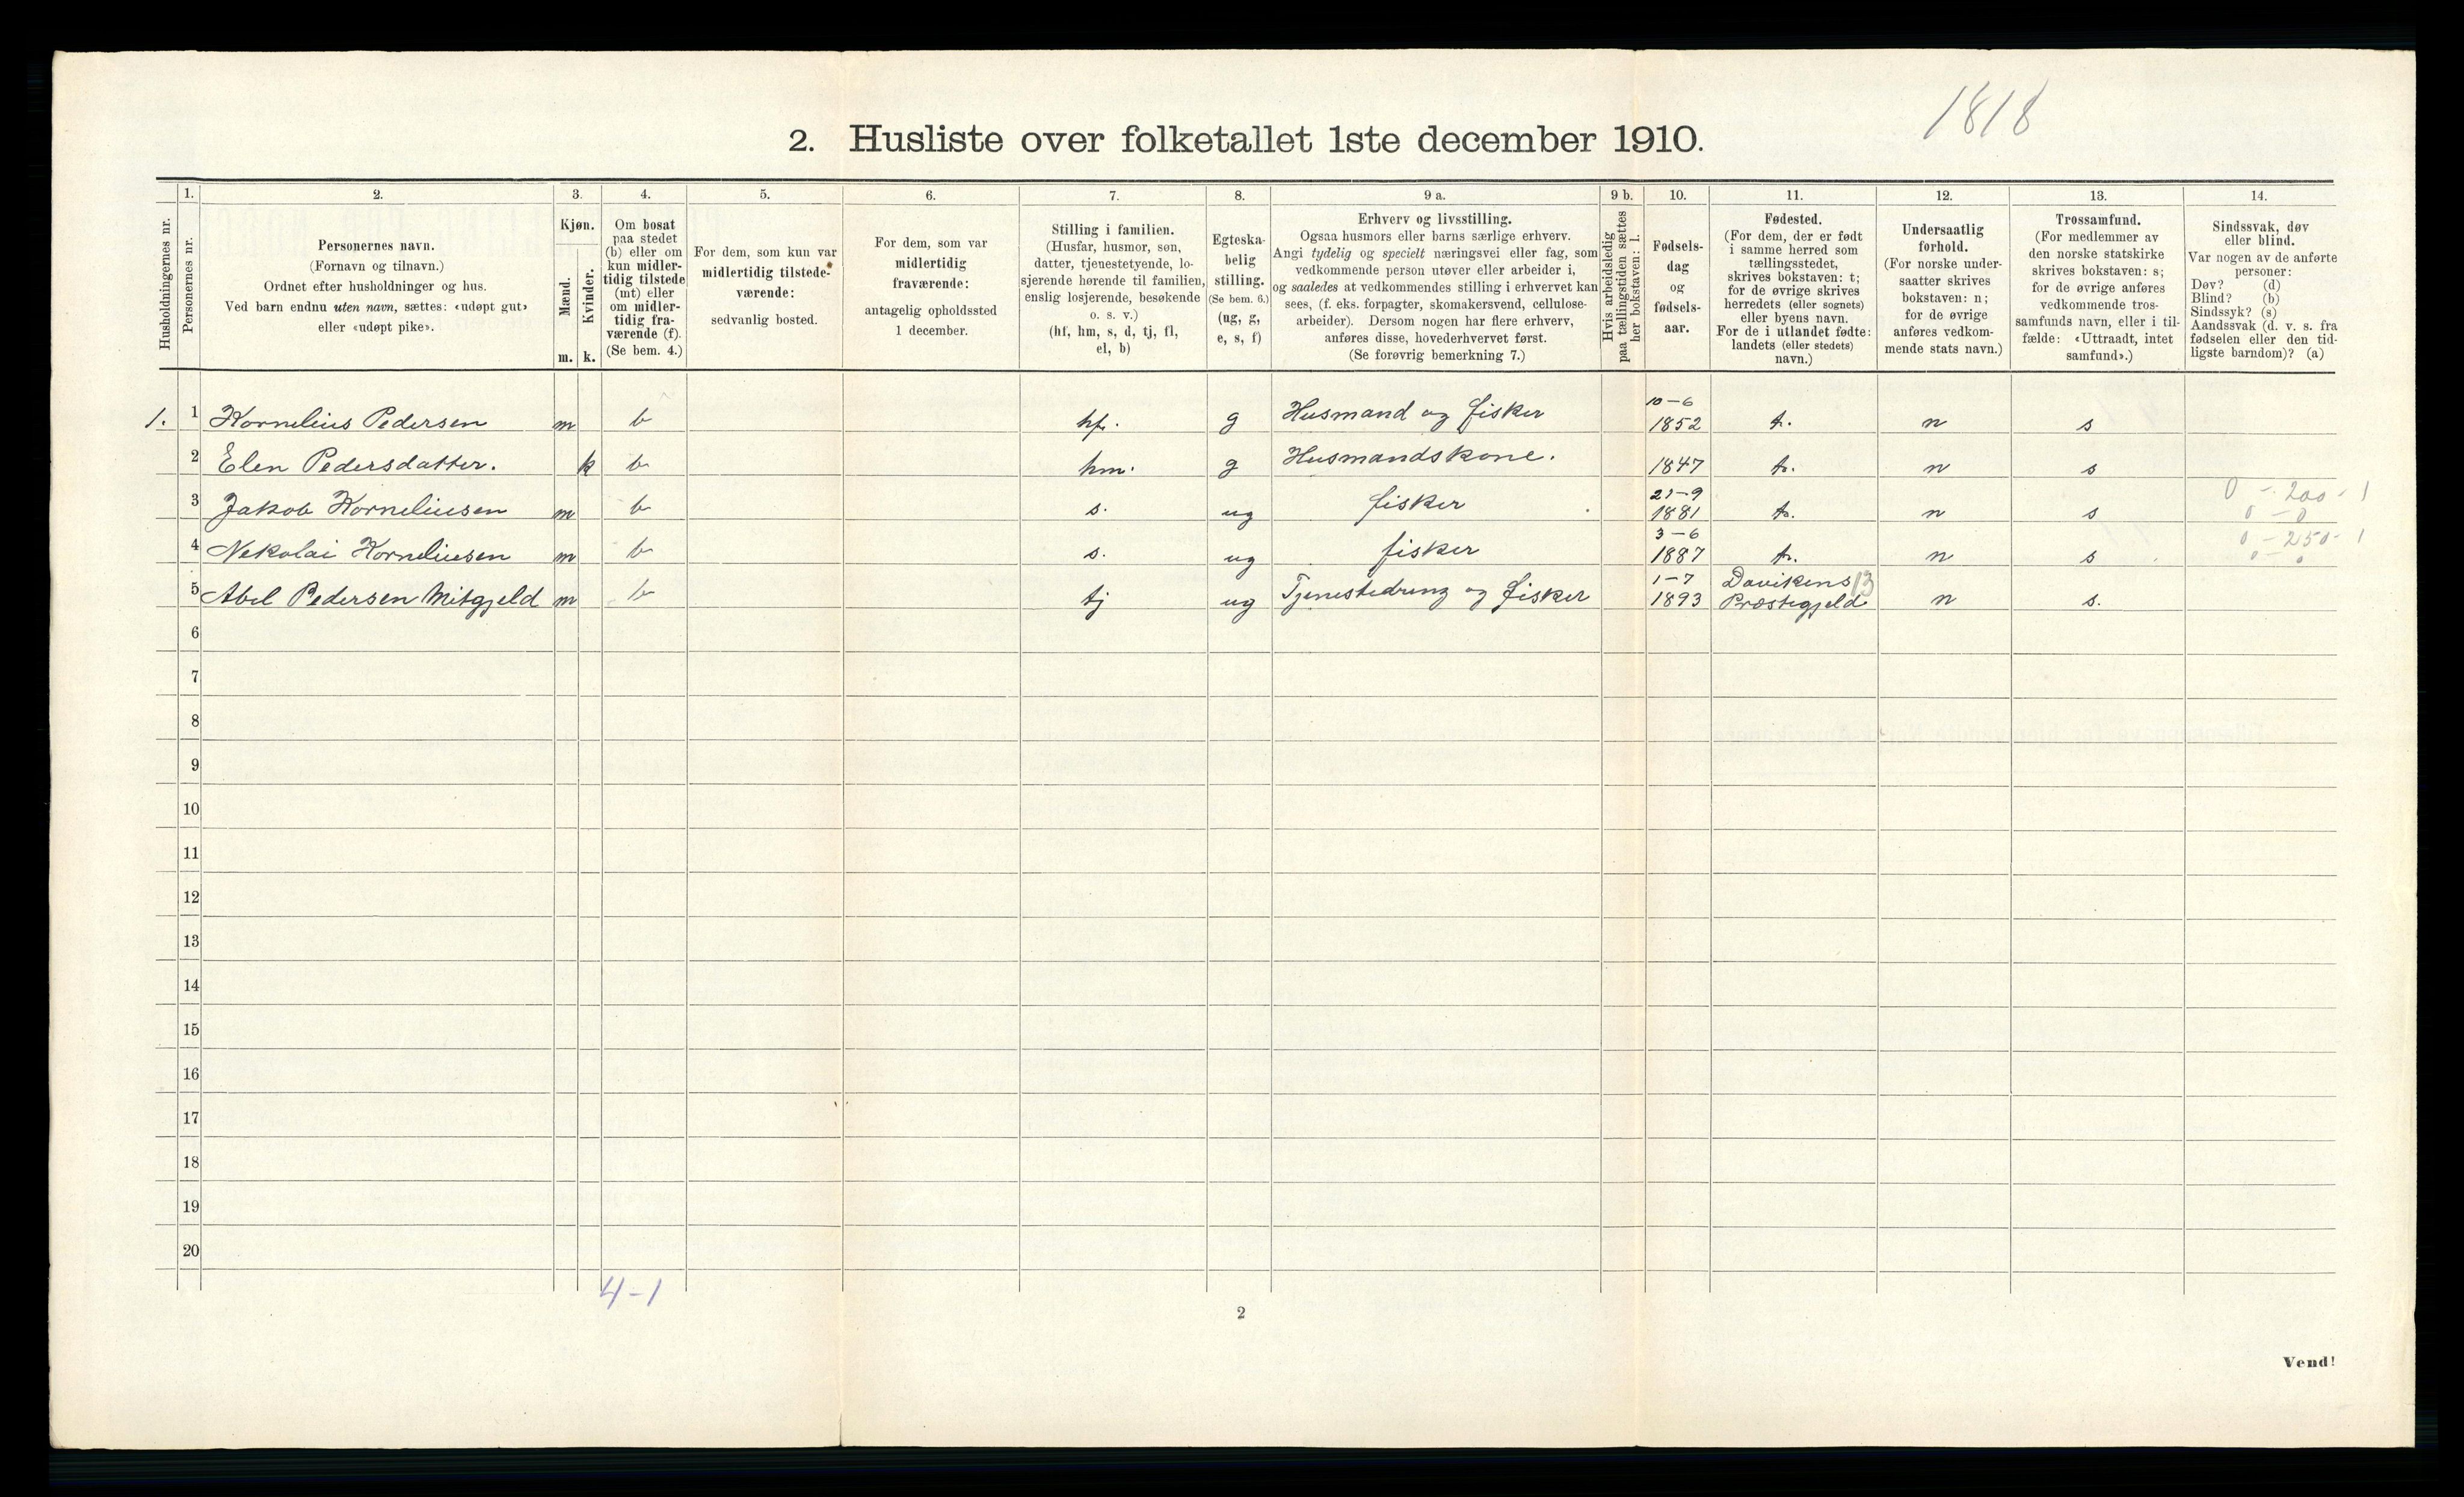 1818
2. Husliste over folketallet 1ste december 1910.
1. 2. 3. 4. 5. 6. 7. 8. 9 a. 9 b. 10. 11. 12. 13. 14.
Husholdningernes nr.
Personernes nr.
Personernes navn.
(Fornavn og tilnavn.)
Ordnet efter husholdninger og hus.
Ved barn endnu uten navn, sættes: «udøpt gut»
eller «udøpt pike».
Kjøn.
Mænd.
Kvinder.
m. k.
Om bosat
paa stedet
(b) eller om
kun midler-
tidig tilstede
(mt) eller
om midler-
tidig fra-
værende (f).
(Se bem. 4.)
For dem, som kun var
midlertidig tilstede-
værende:
sedvanlig bosted.
For dem, som var
midlertidig
fraværende:
antagelig opholdssted
1 december.
Stilling i familien.
(Husfar, husmor, søn,
datter, tjenestetyende, lo-
sjerende hørende til familien,
enslig losjerende, besøkende
o. s. v.)
(hf, hm, s, d, tj, fl,
el, b)
Egteska-
belig
stilling.
(Se bem. 6.)
(ug, g,
e, s, f)
Erhverv og livsstilling.
Ogsaa husmors eller barns særlige erhverv.
Angi tydelig og specielt næringsvei eller fag, som
vedkommende person utøver eller arbeider i,
og saaledes at vedkommendes stilling i erhvervet kan
sees, (f. eks. forpagter, skomakersvend, cellulose-
arbeider). Dersom nogen har flere erhverv,
anføres disse, hovederhvervet først.
(Se forøvrig bemerkning 7.)
Hvis arbeidsledig
paa tællingstiden sættes
her bokstaven: l.
Fødsels-
dag
og
fødsels-
aar.
Fødested.
(For dem, der er født
i samme herred som
tællingsstedet,
skrives bokstaven: t;
for de øvrige skrives
herredets (eller sognets)
eller byens navn.
For de i utlandet fødte:
landets (eller stedets)
navn.)
Undersaatlig
forhold.
(For norske under-
saatter skrives
bokstaven: n;
for de øvrige
anføres vedkom-
mende stats navn.)
Trossamfund.
(For medlemmer av
den norske statskirke
skrives bokstaven: s;
for de øvrige anføres
vedkommende tros-
samfunds navn, eller i til-
fælde: «Uttraadt, intet
samfund».)
Sindssvak, døv
eller blind.
Var nogen av de anførte
personer:
Døv? (d)
Blind? (b)
Sindssyk? (s)
Aandssvak (d. v. s. fra
fødselen eller den tid-
ligste barndom)? (a)
1. 1 Kornelius Pedersen m b hf. g Husmand og fisker 10-6 1852 t. n s
2 Elen Pedersdatter. k b hm. g Husmandskone. 1847 t. n s
3 Jakob Korneliusen m b s. ug fisker 21-9 1881 t. n s 0 - 200 - 1
0 - 0
4 Nekolai Korneliusen m b s. ug fisker 3-6 1887 t. n s 0 - 250 - 1
0 - 0
5 Abel Pedersen Mitgjeld m b tj ug Tjenestedreng og fisker 1-7 1893 Davikens Præstegjeld 13 n s.
6
7
8
9
10
11
12
13
14
15
16
17
18
19
20
4-1
2
Vend!